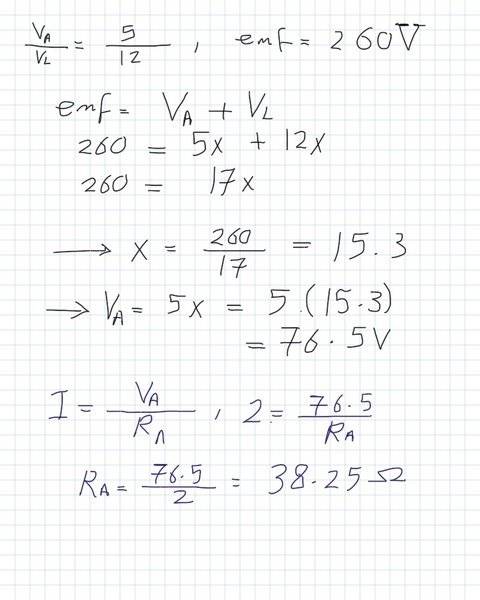 V_A/V_L = 5/12 , emf = 260V
emf = V_A + V_L
260 = 5x + 12x
260 = 17x
→ x = 260/17 = 15.3
→ V_A = 5x = 5.(15.3)
= 76.5V
I = V_A/R_A , 2 = 76.5/R_A
R_A = 76.5/2 = 38.25 Ω